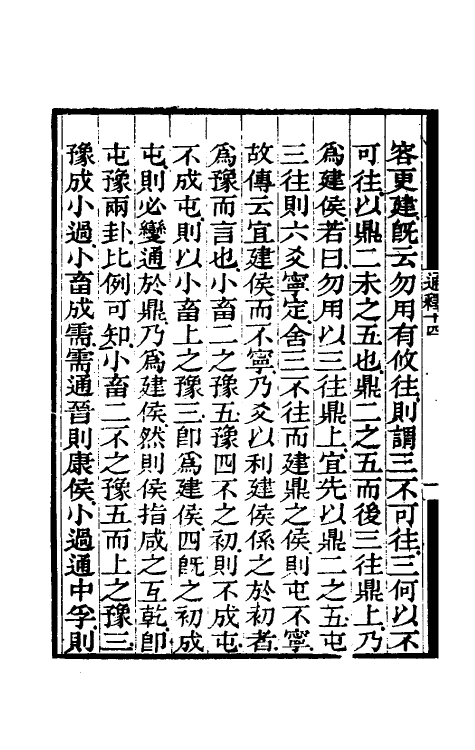 容更建旣云勿用有攸往則謂三不可往三何以不
可往以鼎二未之五也鼎二之五而後三往鼎上乃
爲建侯若曰勿用以三往鼎上宜先以鼎二之五屯
三往則六爻寧定舍三不往而建鼎之侯則屯不寧
故傳云宜建侯而不寧乃爻以利建侯係之於初者
爲豫而言也小畜二之豫五豫四不之初則不成屯
不成屯則以小畜上之豫三卽爲建侯四旣之初成
屯則必變通於鼎乃爲建侯然則侯指咸之互乾卽
屯豫兩卦比例可知小畜二不之豫五而上之豫三
豫成小過小畜成需需通晉則康侯小過通中孚則
通釋十四
一